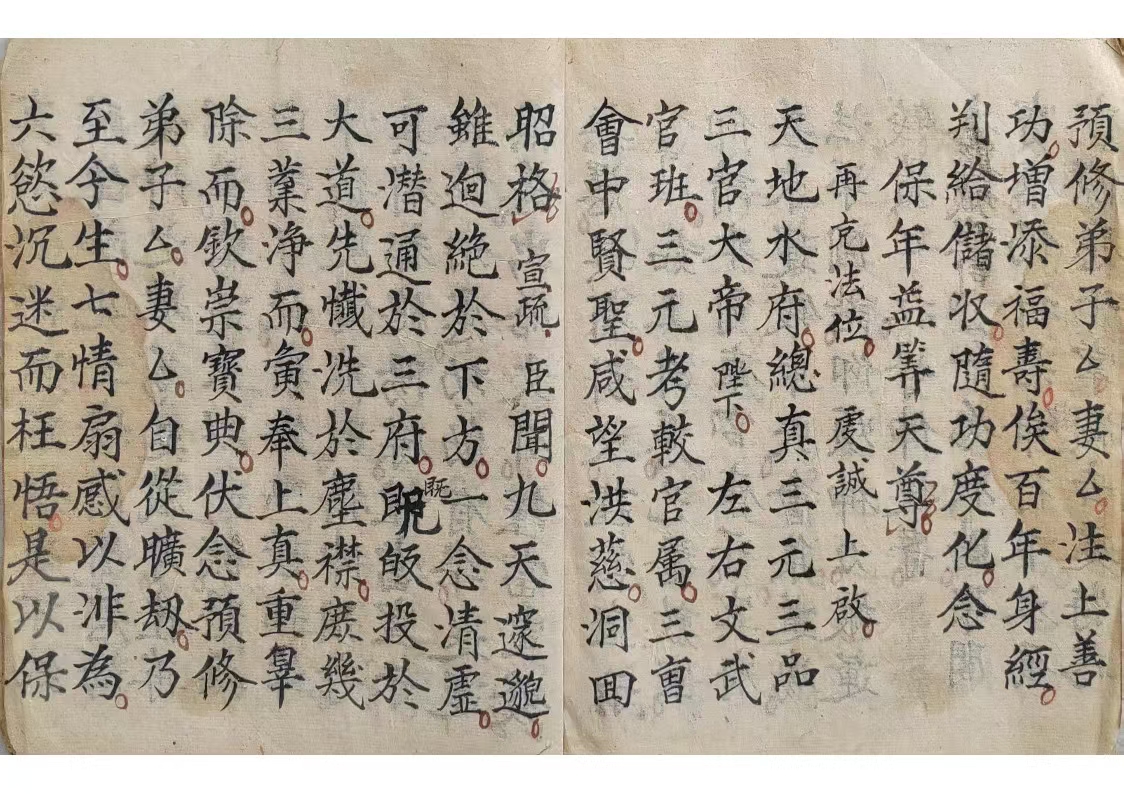 預修弟子厶妻厶注上善
功增添福壽俟百年身經
判給儲收隨功度化念
保年益筭天尊
再充法位虔誠上啟
天地水府總真三元三品
三官大帝陛下左右文武
官班三元考較官属三曹
會中賢聖咸望洪慈洞回
昭格宣疏臣聞九天邃邈
雖迥絕於下方一念清虛
可潛通於三府既皈投於
既
大道先懺洗於塵襟庶幾
三業净而寅奉上真重辠
除而欽崇寶典伏念預修
弟子厶妻厶自從曠刼乃
至今生七情扇惑以非為
六慾沉迷而枉悟是以保